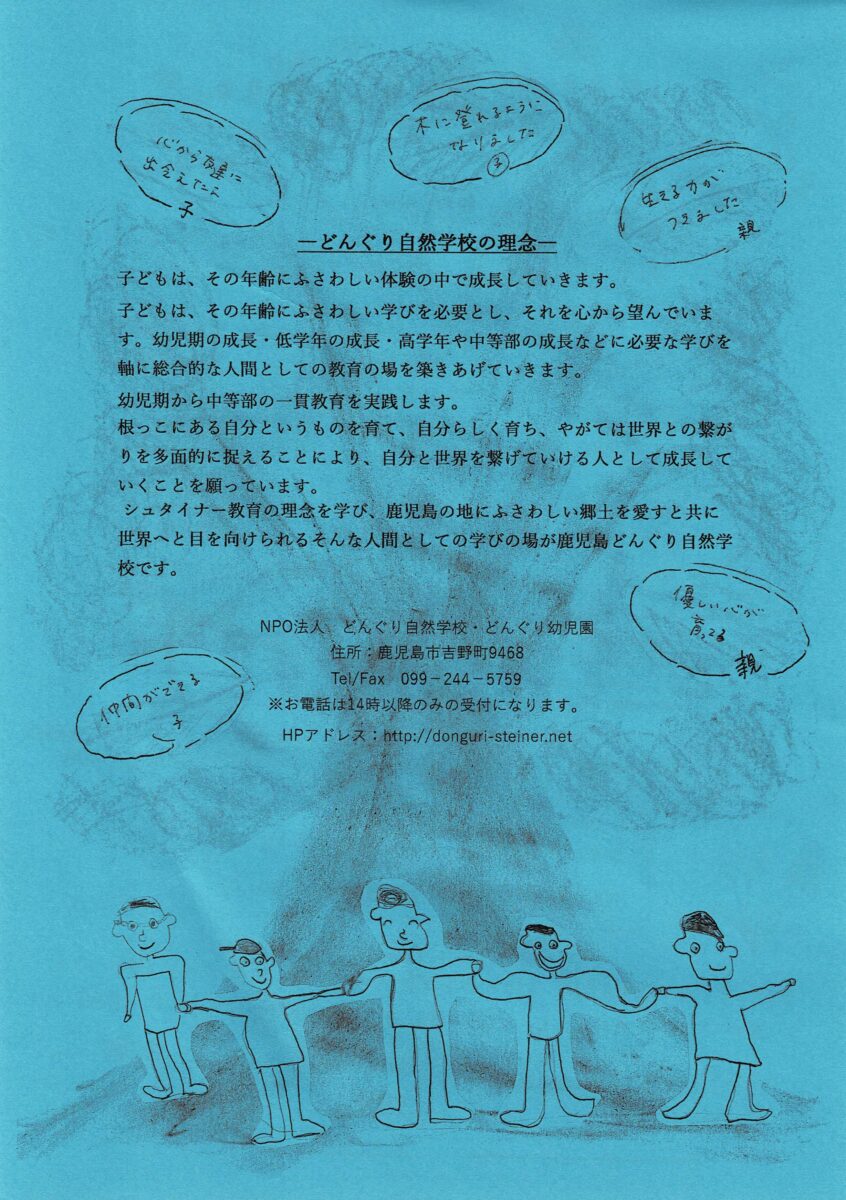 心から友達に
出会えたよ
子
木に登れるように
なりました
子
生きる力が
つきました
親
―どんぐり自然学校の理念―
子どもは、その年齢にふさわしい体験の中で成長していきます。
子どもは、その年齢にふさわしい学びを必要とし、それを心から望んでいま
す。幼児期の成長・低学年の成長・高学年や中等部の成長などに必要な学びを
軸に総合的な人間としての教育の場を築きあげていきます。
幼児期から中等部の一貫教育を実践します。
根っこにある自分というものを育て、自分らしく育ち、やがては世界との繋が
りを多面的に捉えることにより、自分と世界を繋げていける人として成長して
いくことを願っています。
シュタイナー教育の理念を学び、鹿児島の地にふさわしい郷土を愛すと共に
世界へと目を向けられるそんな人間としての学びの場が鹿児島どんぐり自然学
校です。
優しい心が
育ってる
親
NPO法人　どんぐり自然学校・どんぐり幼児園
住所：鹿児島市吉野町9468
Tel/Fax　099－244－5759
※お電話は14時以降のみの受付になります。
HPアドレス：http://donguri-steiner.net
仲間ができる
子